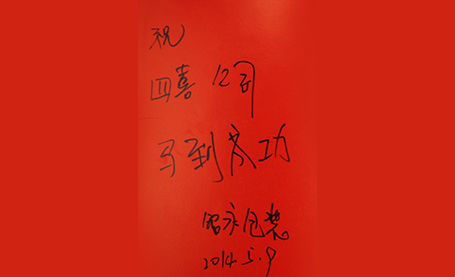 祝
四喜公司
马到成功
包装
2014.5.9